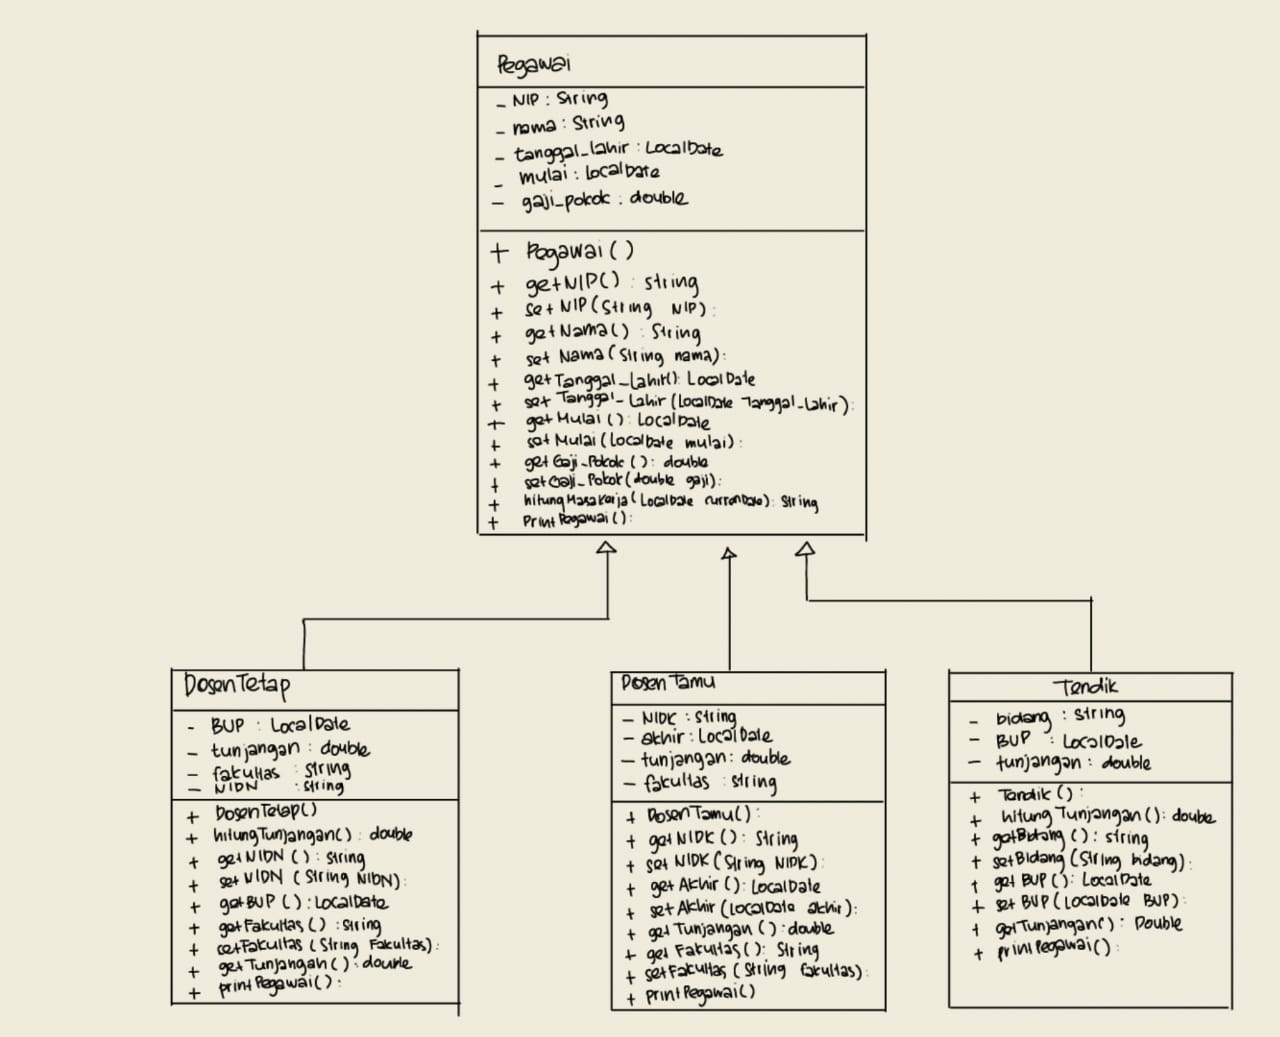 Pegawai
- NIP : String
- nama : String
- tanggal_lahir : LocalDate
- mulai : LocalDate
- gaji_pokok : double
+ Pegawai ( )
+ getNIP() : string
+ set NIP (String NIP) :
+ getNama() : String
+ set Nama (String nama) :
+ getTanggal_Lahir() : LocalDate
+ set Tanggal_Lahir (LocalDate Tanggal_Lahir) :
+ getMulai () : LocalDate
+ setMulai (LocalDate mulai) :
+ getGaji_Pokok () : double
+ setGaji_Pokok (double gaji) :
+ hitungMasaKerja (LocalDate currenDate) : String
+ PrintPegawai () :
DosenTetap
- BUP : LocalDate
- tunjangan : double
- fakultas : String
- NIDN : String
+ DosenTetap()
+ hitungTunjangan() : double
+ getNIDN () : String
+ setNIDN (String NIDN) :
+ getBUP () : LocalDate
+ getFakultas () : String
+ setFakultas (String Fakultas) :
+ getTunjangan () : double
+ printPegawai () :
Dosen Tamu
- NIDK : String
- akhir : LocalDate
- tunjangan : double
- fakultas : string
+ DosenTamu () :
+ getNIDK () : String
+ set NIDK (String NIDK) :
+ getAkhir () : LocalDate
+ setAkhir (LocalDate akhir) :
+ getTunjangan () : double
+ get Fakultas () : String
+ setFakultas (String fakultas) :
+ printPegawai ()
Tendik
- bidang : string
- BUP : LocalDate
- tunjangan : double
+ Tendik () :
+ hitung Tunjangan () : double
+ getBidang () : string
+ setBidang (String bidang) :
+ get BUP () : LocalDate
+ set BUP (LocalDate BUP) :
+ getTunjangan () : Double
+ printPegawai () :